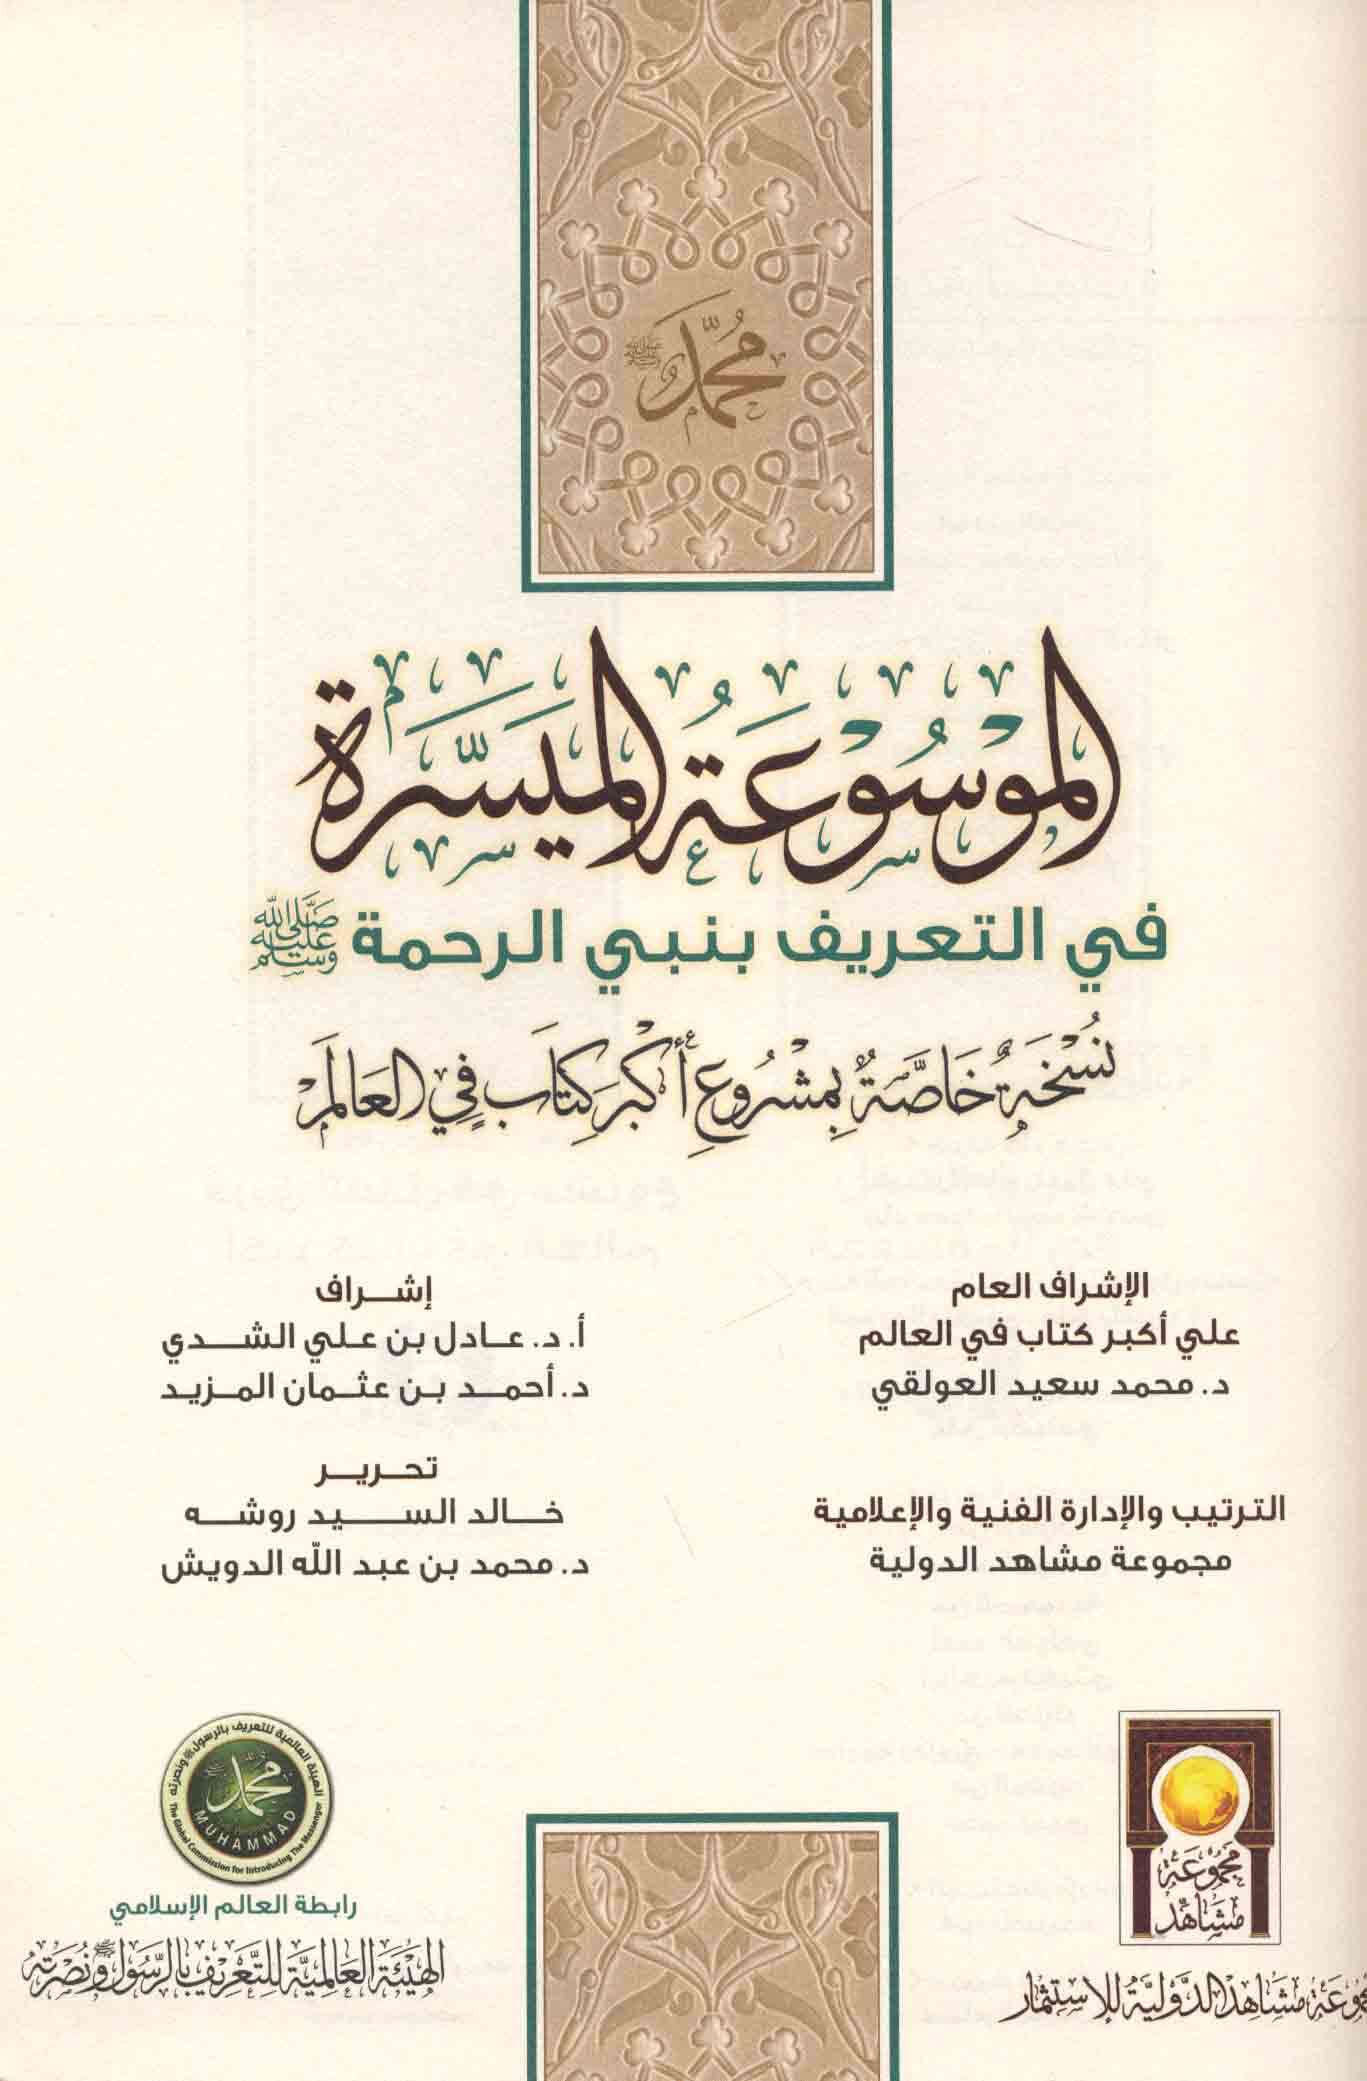 محمد ﷺ
الموسوعة الميسرة
في التعريف بنبي الرحمة ﷺ
نسخة خاصة بمشروع أكبر كتاب في العالم
الإشراف العام
علي أكبر كتاب في العالم
د. محمد سعيد العولقي
الترتيب والإدارة الفنية والإعلامية
مجموعة مشاهد الدولية
إشراف
أ. د. عادل بن علي الشدي
د. أحمد بن عثمان المزيد
تحرير
خالد السيد روشه
د. محمد بن عبد الله الدويش
مجموعة
مشاهد
مجموعة مشاهد الدولية للاستثمار
الهيئة العالمية للتعريف بالرسول ﷺ ونصرته
محمد
MUHAMMAD
The Global Commission for Introducing The Messenger
رابطة العالم الإسلامي
الهيئة العالمية للتعريف بالرسول ﷺ ونصرته